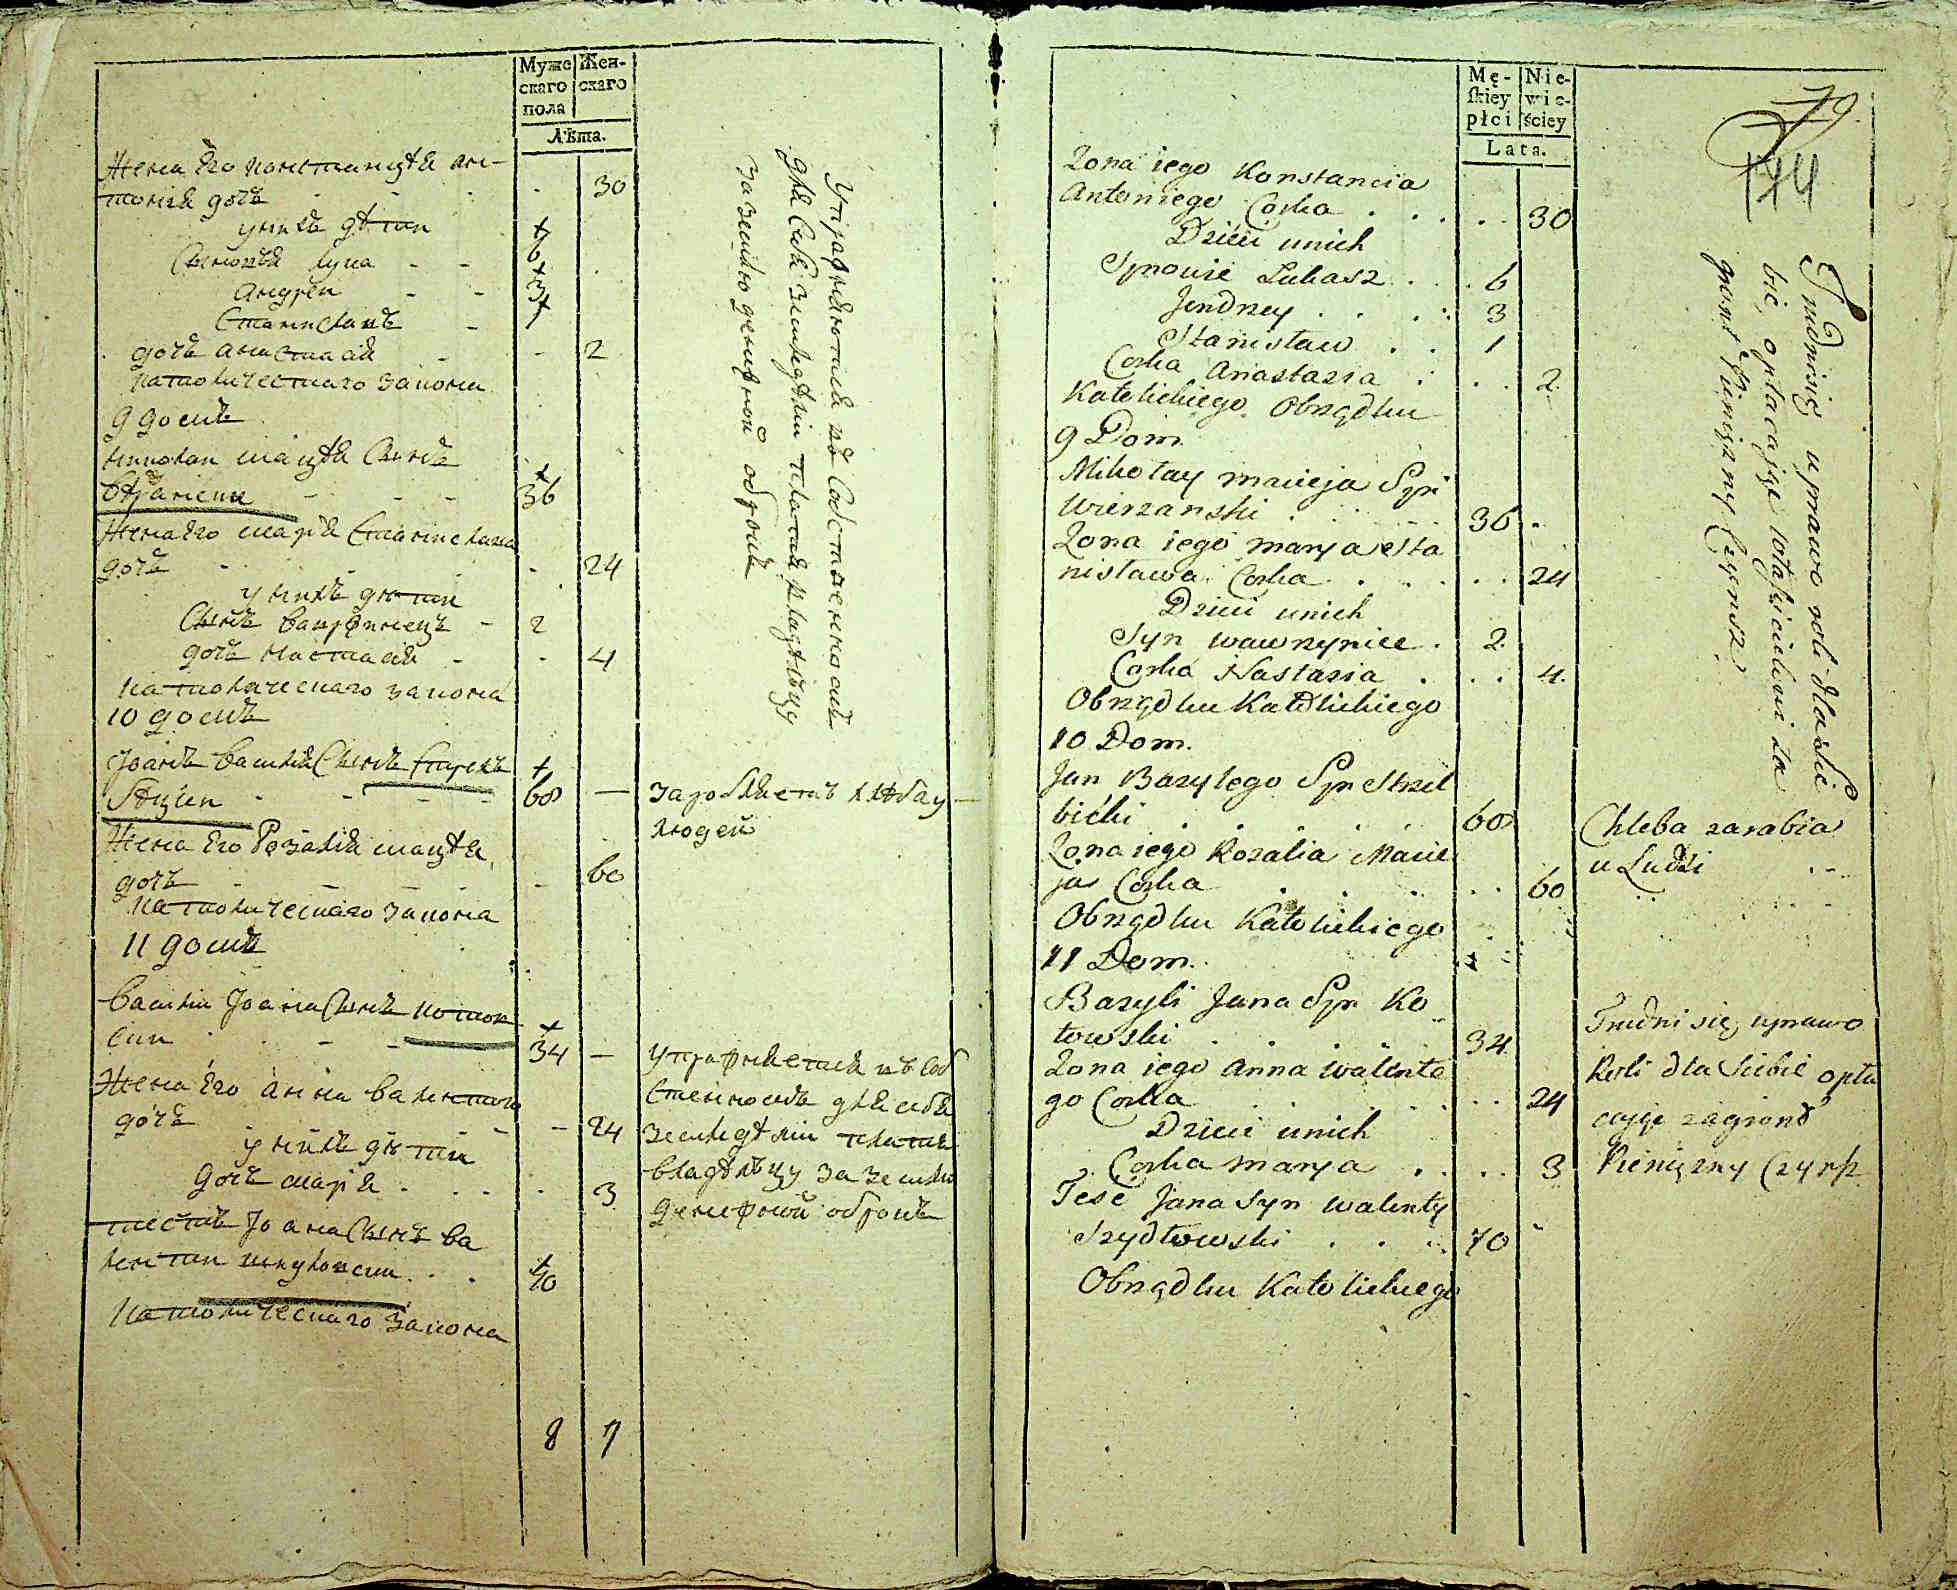 Муже Жен-
скаго скаго
пола
Лѣта.
Жена Его Констанція Ан-
тонія дочь - 30
у нихъ дѣти
Сыновья Лука - - 6
Андрей - - 3
Станиславъ - 1
дочь Анастасія - - 2
Католическаго закона
9 домъ
Николай Мацѣя Сынъ
Вѣржански - - - 36
Жена Его Марія Станислава
дочь - - 24
у нихъ дѣти
Сынъ Вавринецъ - 2
дочь Настасія - - 4
Католическаго закона
10 домъ
Іоанъ Василія Сынъ
- - - 60 —
Жена Его Розалія Мацѣя
дочь - - - - 60
Католическаго закона
11 домъ
Василий Іоана Сынъ Котов
ски - - 34 —
Жена Его Анна Валентаго
дочь - - - 24
у нихъ дѣти
Дочь Марія . . . 3
тесть Іоана Сынъ Ва
лентии Шидловски . . . 70
Католическаго закона
8 7
Упражняются въ Собственности
для Себя Земледѣліи платя владѣльцу
за землю денежной оброкъ
Зароблаетъ хлѣба у
людей
Упражняется въ Соб
ственности для себя
Земледѣліи платя
Владѣльцу За Землю
Денежной оброкъ
Mę- Nie-
ſkiey wie-
płci ściey
Lata.
79
174
Żona iego Konstancia
Antoniego Corka . . . . . 30
Dzieci unich
Synowie Lukasz . . . 6
Jendrzey . . . . 3
Stanisław . . 1
Corka Anastazia . . . 2
Katolickiego Obrządku
9 Dom
Mikołay Macieja Syn
Wierzanski . . . . 36
Żona iego Marya Sta
nisława Corka . . . . . 24
Dzieci unich
Syn Wawrzyniec . 2
Corka Nastazia . . . 4.
Obrządku Katolickiego
10 Dom.
Jan Bazylego Syn Strzel
bicki . . . . . 60
Żona iego Rozalia Macie
ja Corka . . . . . 60
Obrządku Katolickiego
11 Dom.
Bazyli Jana Syn Ko
towski . . . . . 34
Żona iego Anna Walente
go Corka . . . . . . 24
Dzieci unich
Corka Marya . . . . 3
Teść Jana Syn Walenty
Szydłowski . . . . 70
Obrządku Katolickiego
Trudnisię uprawo roli dla sie
bie, opłacając właścicielowi za
gront Pinięzny Czynsz
Chleba zarabia
u Ludzi
Trudni się uprawo
Roli dla Siebie opła
cając zagrond
Pinięzny Czynsz